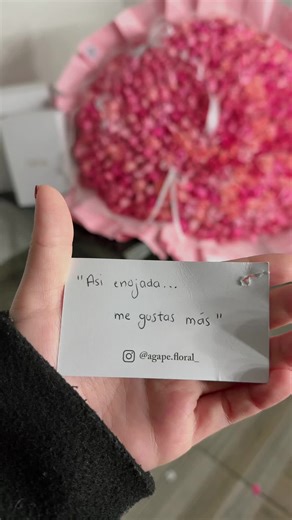 "Asi enojada...
me gustas más"
@agape.floral_